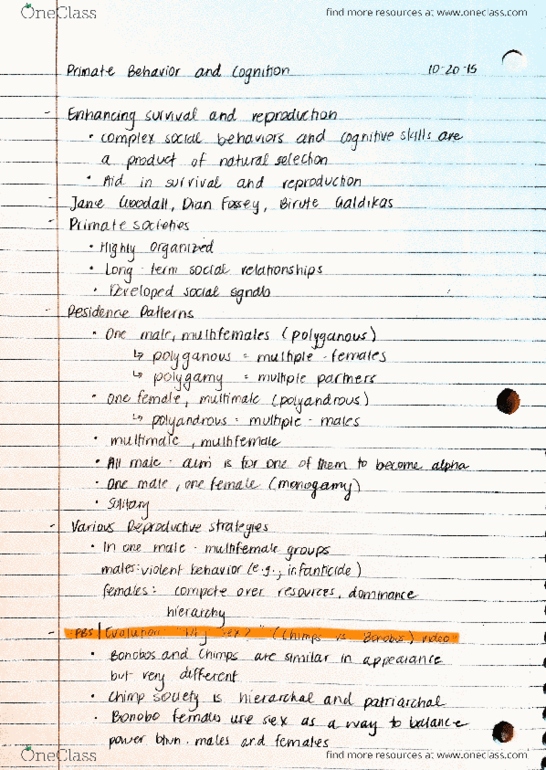 OneClass
find more resources at www.oneclass.com
Primate Behavior and Cognition 10-20-15
- Enhancing survival and reproduction
• complex social behaviors and cognitive skills are
a product of natural selection
• Aid in survival and reproduction
- Jane Goodall, Dian Fossey, Birute Galdikas
- Primate societies
• Highly organized
• Long-term social relationships
• Developed social signals
- Residence Patterns
• One male, multifemales (polyganous)
↳ polyganous = multiple - females
↳ polygamy = multiple partners
• One female, multimale (polyandrous)
↳ polyandrous = multiple - males
• multimale, multifemale
• All male - aim is for one of them to become alpha
• One male, one female (monogamy)
• Solitary
- Various Reproductive strategies
• In one male - multifemale groups
males: violent behavior (e.g., infanticide)
females: compete over resources, dominance
hierarchy
- PBS | Evolution "Why Sex?" (Chimps vs. Bonobos) video
• Bonobos and Chimps are similar in appearance
but very different
• Chimp society is hierarchal and patriarchal
• Bonobo females use sex as a way to balance
power btwn. males and females
OneClass
find more resources at www.oneclass.com